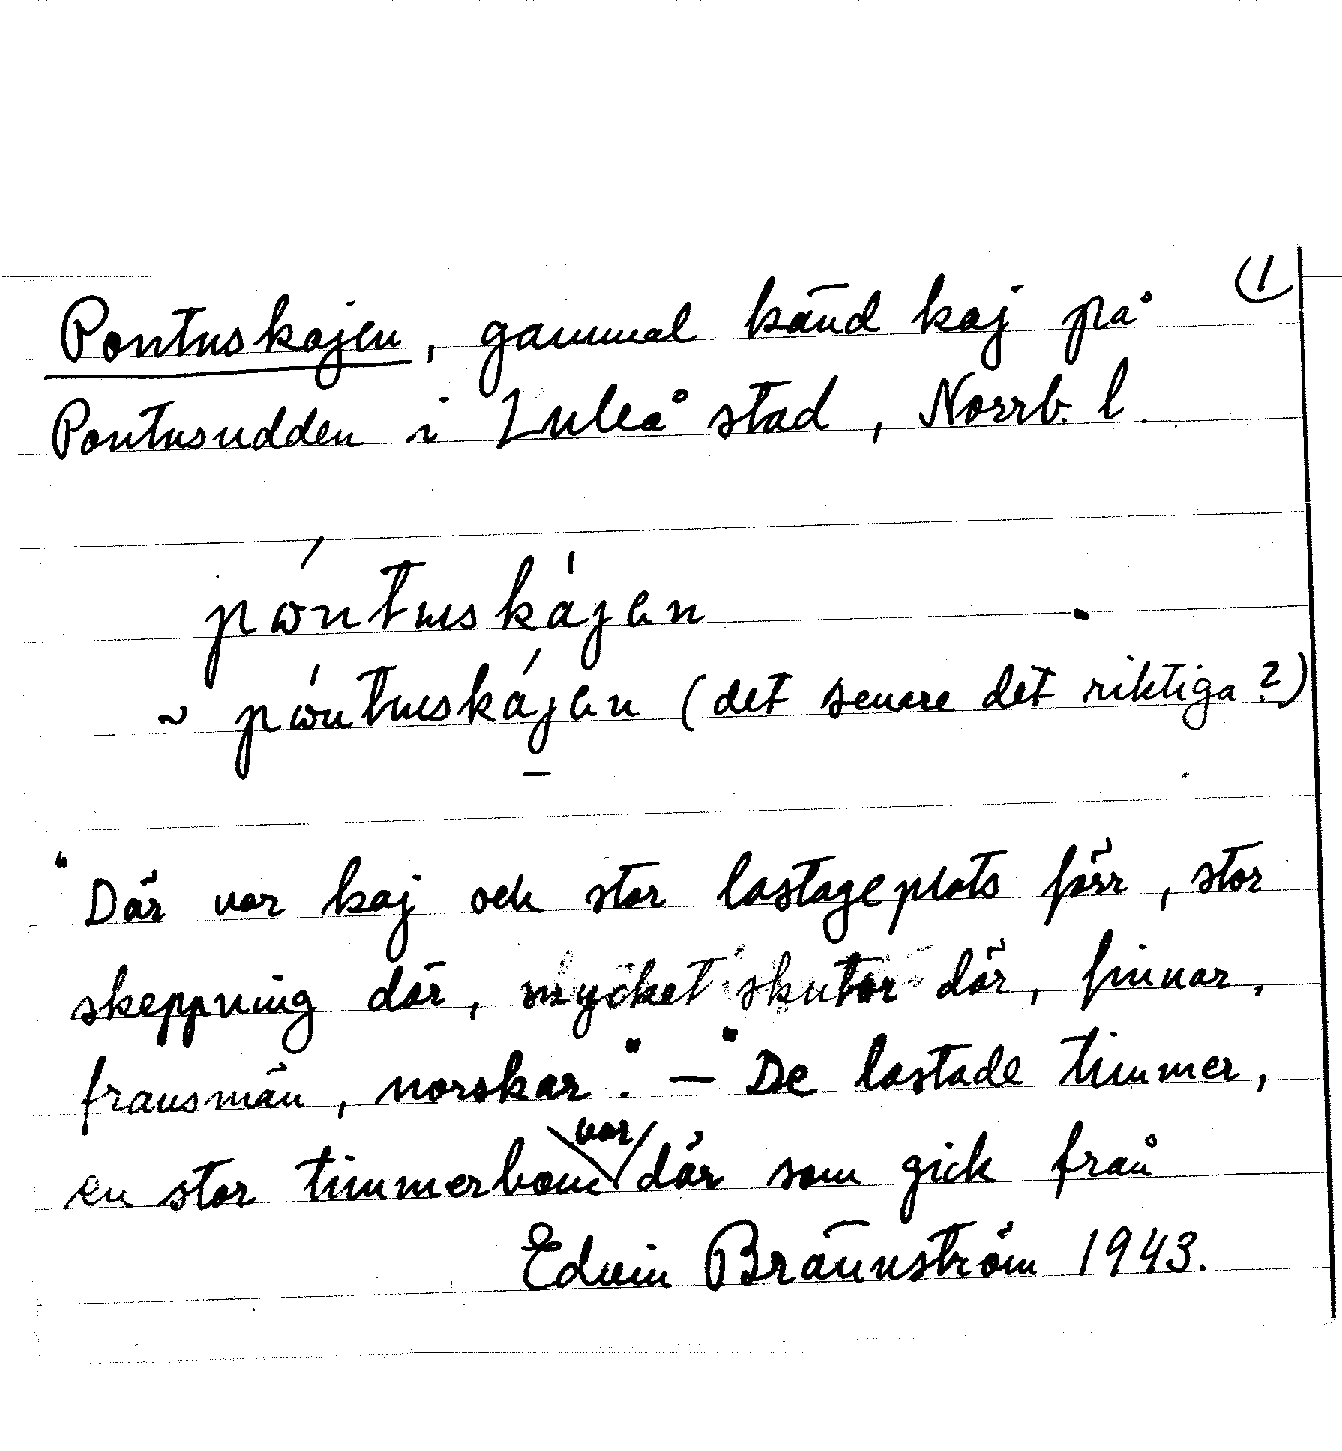 ①
Pontuskajen, gammal känd kaj på
Pontusudden i Luleå stad, Norrb. l.
pω´ntuskájen
~ pω´ntuskájen (det senare det riktiga?)
"Där var kaj och stor lastageplats förr, stor
skeppning där, mycket skutor där, finnar,
fransmän, norskar." — "De lastade timmer,
en stor timmerbom var där som gick från
Edvin Brännström 1943.